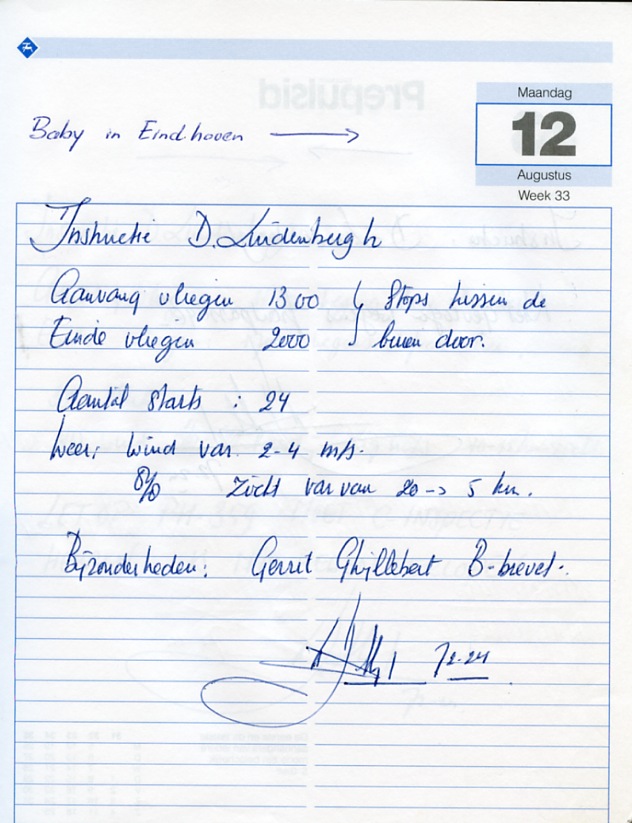 Maandag
12
Augustus
Week 33
Baby in Eindhoven →
Instructie D. Luidenburgh
Aanvang vliegen 1300 } Stops tussen de
Einde vliegen 2000 } buien door.
Aantal starts : 24
Weer; wind var. 2-4 m/s.
8/8 Zicht var van 20 -> 5 km.
Bijzonderheden: Gerrit Ghijllebert B-brevet.